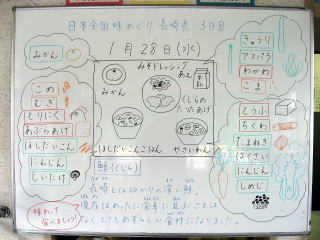 日本全国味めぐり 長崎県 3日目
1月28日(水)
みかん
こめ
むぎ
とりにく
あぶらあげ
ほしだいこん
にんじん
しいたけ
みそドレッシング
あえ
牛乳
みかん
くじらの
たつたあげ
ほしだいこんごはん
やさいわん
きゅうり
アスパラ
わかめ
ごま
とうふ
ちくわ
たまねぎ
はくさい
にんじん
しめじ
鯨(くじら)
長崎とはゆかりの深い鯨。
現在はめったに食卓に
なくとてもめずらしい食材になりました。
味わって
食べましょう!